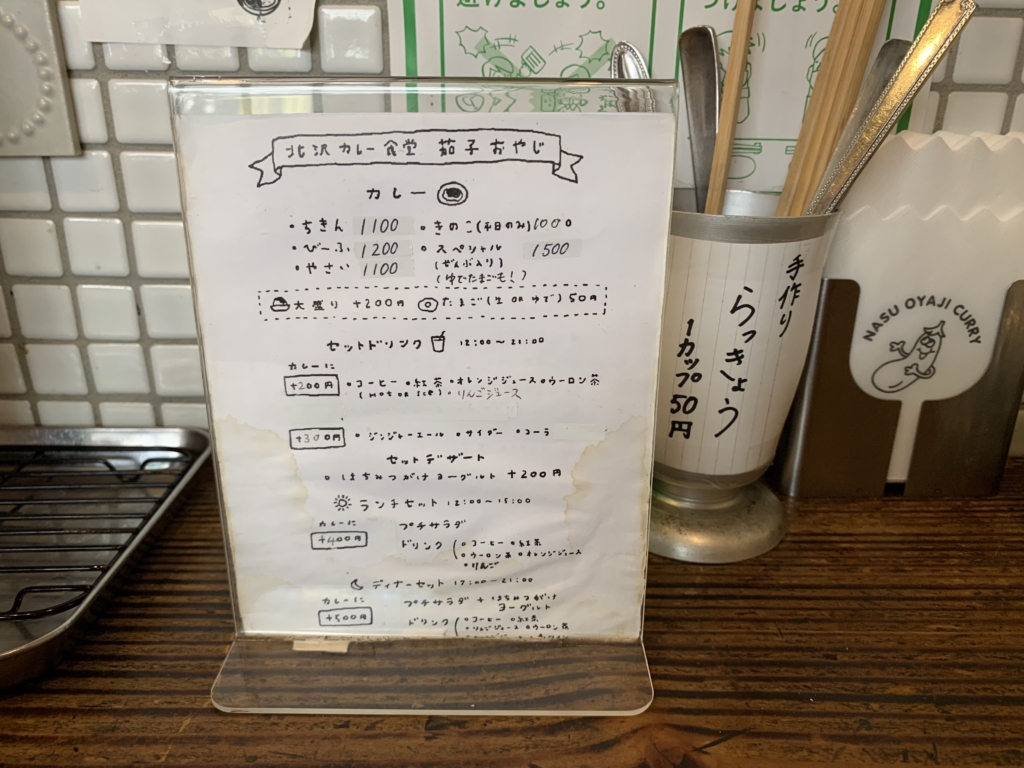 避けましょう。
つけましょう。
北沢カレー食堂 茄子おやじ
カレー
・ちきん 1100 ・きのこ(平日のみ)1000
・びーふ 1200 ・スペシャル 1500
・やさい 1100 (ぜんぶ入り)
(ゆでたまごも!)
大盛り +200円 たまご(生 OR ゆで)50円
セットドリンク 12:00~21:00
カレーに
+200円 ・コーヒー ・紅茶 ・オレンジジュース ・ウーロン茶
(HOT OR ICE) ・りんごジュース
+300円 ・ジンジャーエール ・サイダー ・コーラ
セットデザート
・はちみつがけヨーグルト +200円
ランチセット 12:00~15:00
カレーに プチサラダ
+400円 ドリンク(・コーヒー ・紅茶
・ウーロン茶 ・オレンジジュース
・りんご
ディナーセット 17:00~21:00
カレーに プチサラダ + はちみつがけ
ヨーグルト
+500円 ドリンク(・コーヒー ・紅茶
・りんごジュース ・ウーロン茶
手作り
らっきょう
1カップ50円
NASU OYAJI CURRY